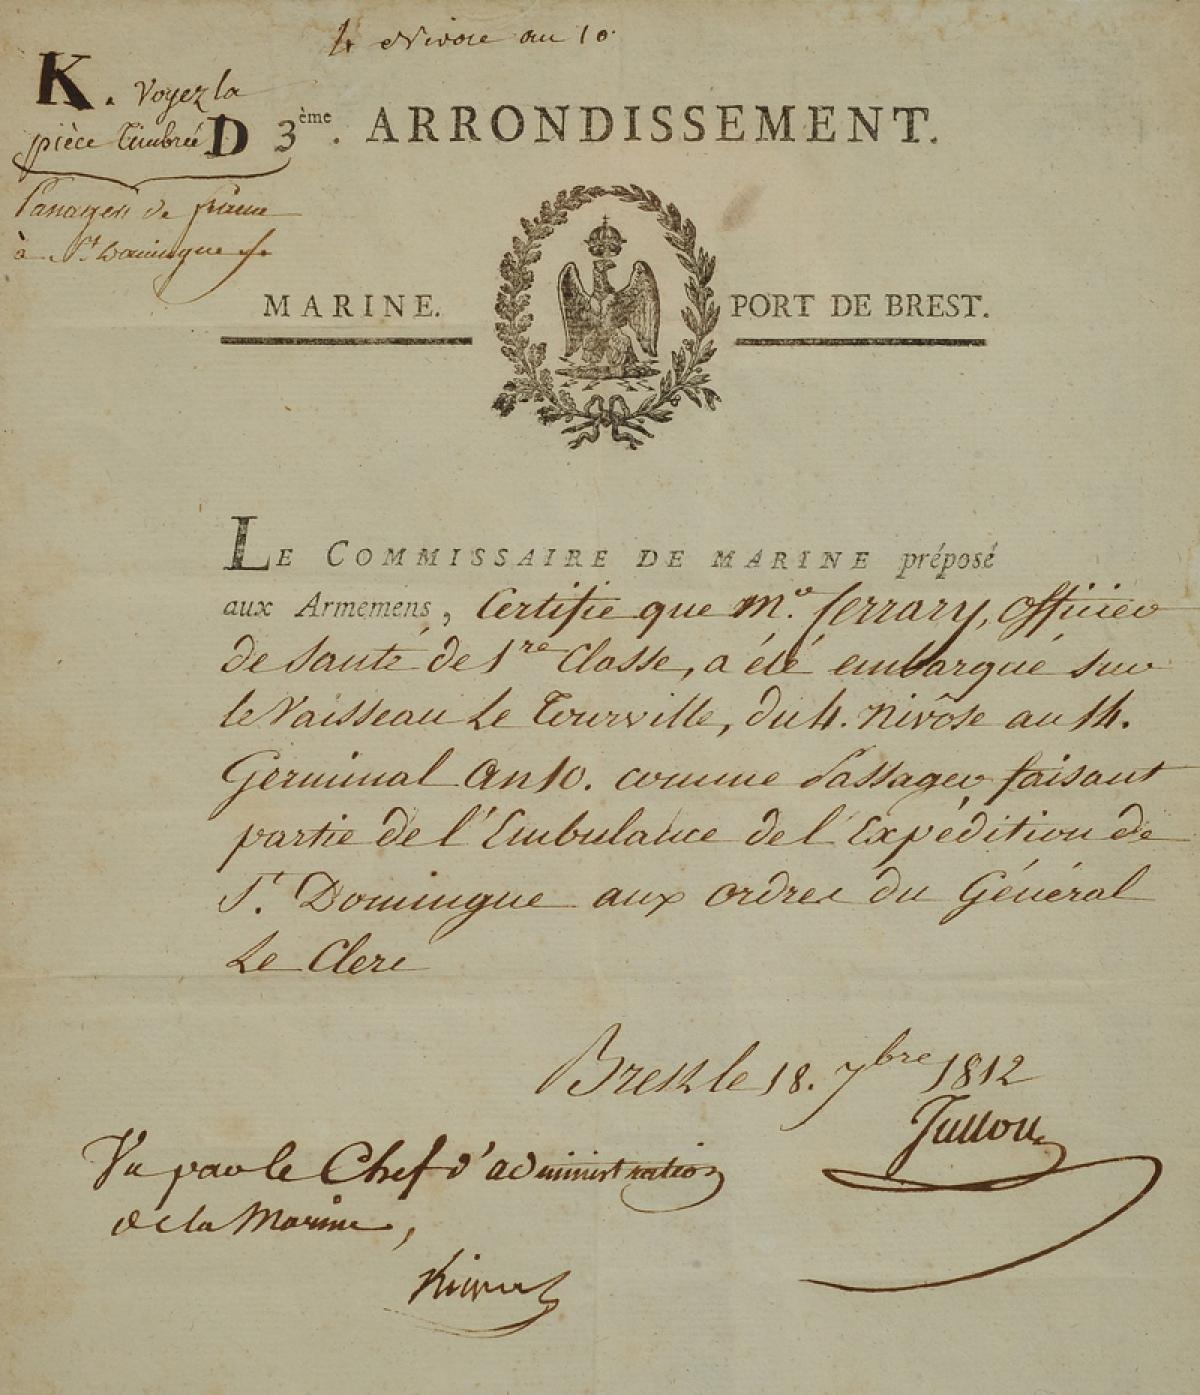 4 Nivose an 10.
K. Voyez la
pièce Timbrée D
Passage de france
à St. Domingue
3ème. ARRONDISSEMENT.
MARINE. PORT DE BREST.
LE COMMISSAIRE DE MARINE préposé
aux Armemens, Certifie que Mr. ferrary, officier
de Santé de 1re Classe, a été embarqué sur
le Vaisseau Le Tourville, du 4. Nivôse au 14.
Germinal an 10. comme Passager faisant
partie de l'Embulance de l'Expédition de
St. Domingue aux ordres du Général
Le Clerc
Brest le 18. 7bre 1812
Vu par le Chef d'administration
de la Marine,